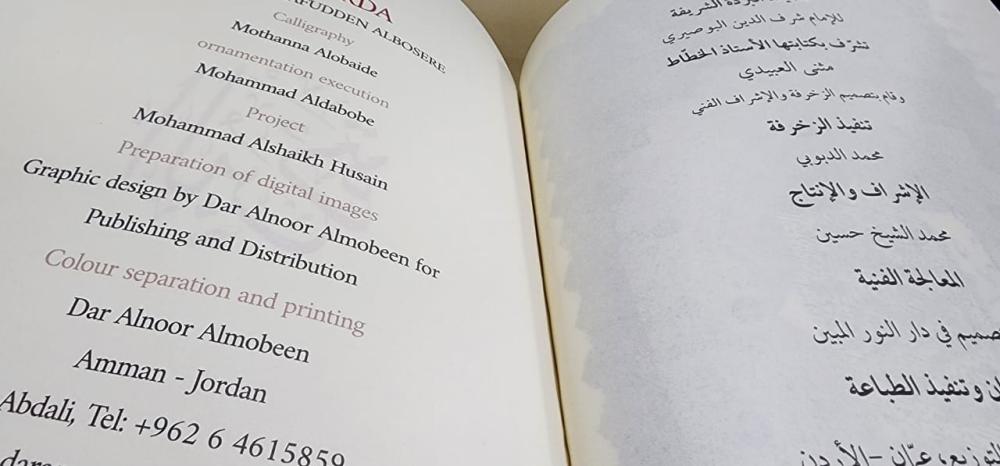 ALBOSERE
Calligraphy
Mothanna Alobaide
ornamentation execution
Mohammad Aldabobe
Project
Mohammad Alshaikh Husain
Preparation of digital images
Graphic design by Dar Alnoor Almobeen for
Publishing and Distribution
Colour separation and printing
Dar Alnoor Almobeen
Amman - Jordan
Abdali, Tel: +962 6 4615859
الشريفة
للإمام شرف الدين البوصيري
تشرّف بكتابتها الأستاذ الخطّاط
مثنى العبيدي
وقام بتصميم الزخرفة والإشراف الفني
تنفيذ الزخرفة
محمد الدبوبي
الإشراف والإنتاج
محمد الشيخ حسين
المعالجة الفنية
في دار النور المبين
وتنفيذ الطباعة
عمّان -الأردن